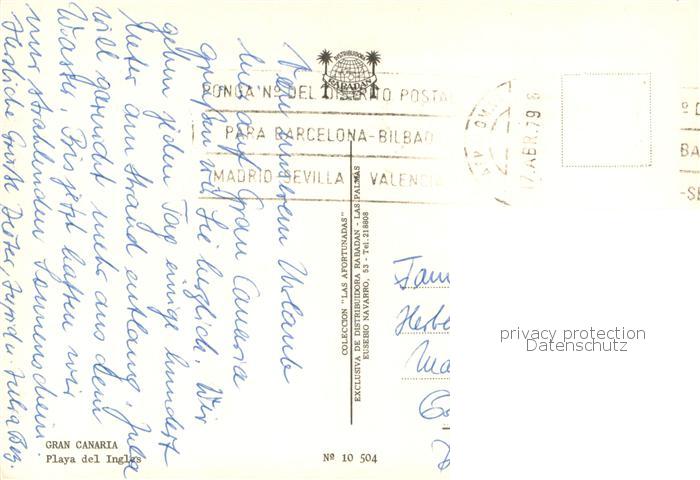 Von unserem Urlaub
hier auf Gran Canaria
grüßen wir Sie herzlich. Wir
gehen jeden Tag einige hundert
Meter am Strand entlang. Julia
will gar nicht mehr aus dem
Wasser. Bis jetzt hatten wir
nur strahlenden Sonnenschein.
Herzliche Grüße Dieter, Julia
DISTRIBUIDORA
RABADAN
PONGA Nº DEL DISTRITO POSTAL
PARA BARCELONA-BILBAO
MADRID-SEVILLA Y VALENCIA
17.ABR.79
COLECCION "LAS AFORTUNADAS"
EXCLUSIVA DE DISTRIBUIDORA RABADAN - LAS PALMAS
EUSEBIO NAVARRO, 53 - Tel. 218808
Fam
Herbe
Ma
privacy protection
Datenschutz
GRAN CANARIA
Playa del Inglés
Nº 10 504